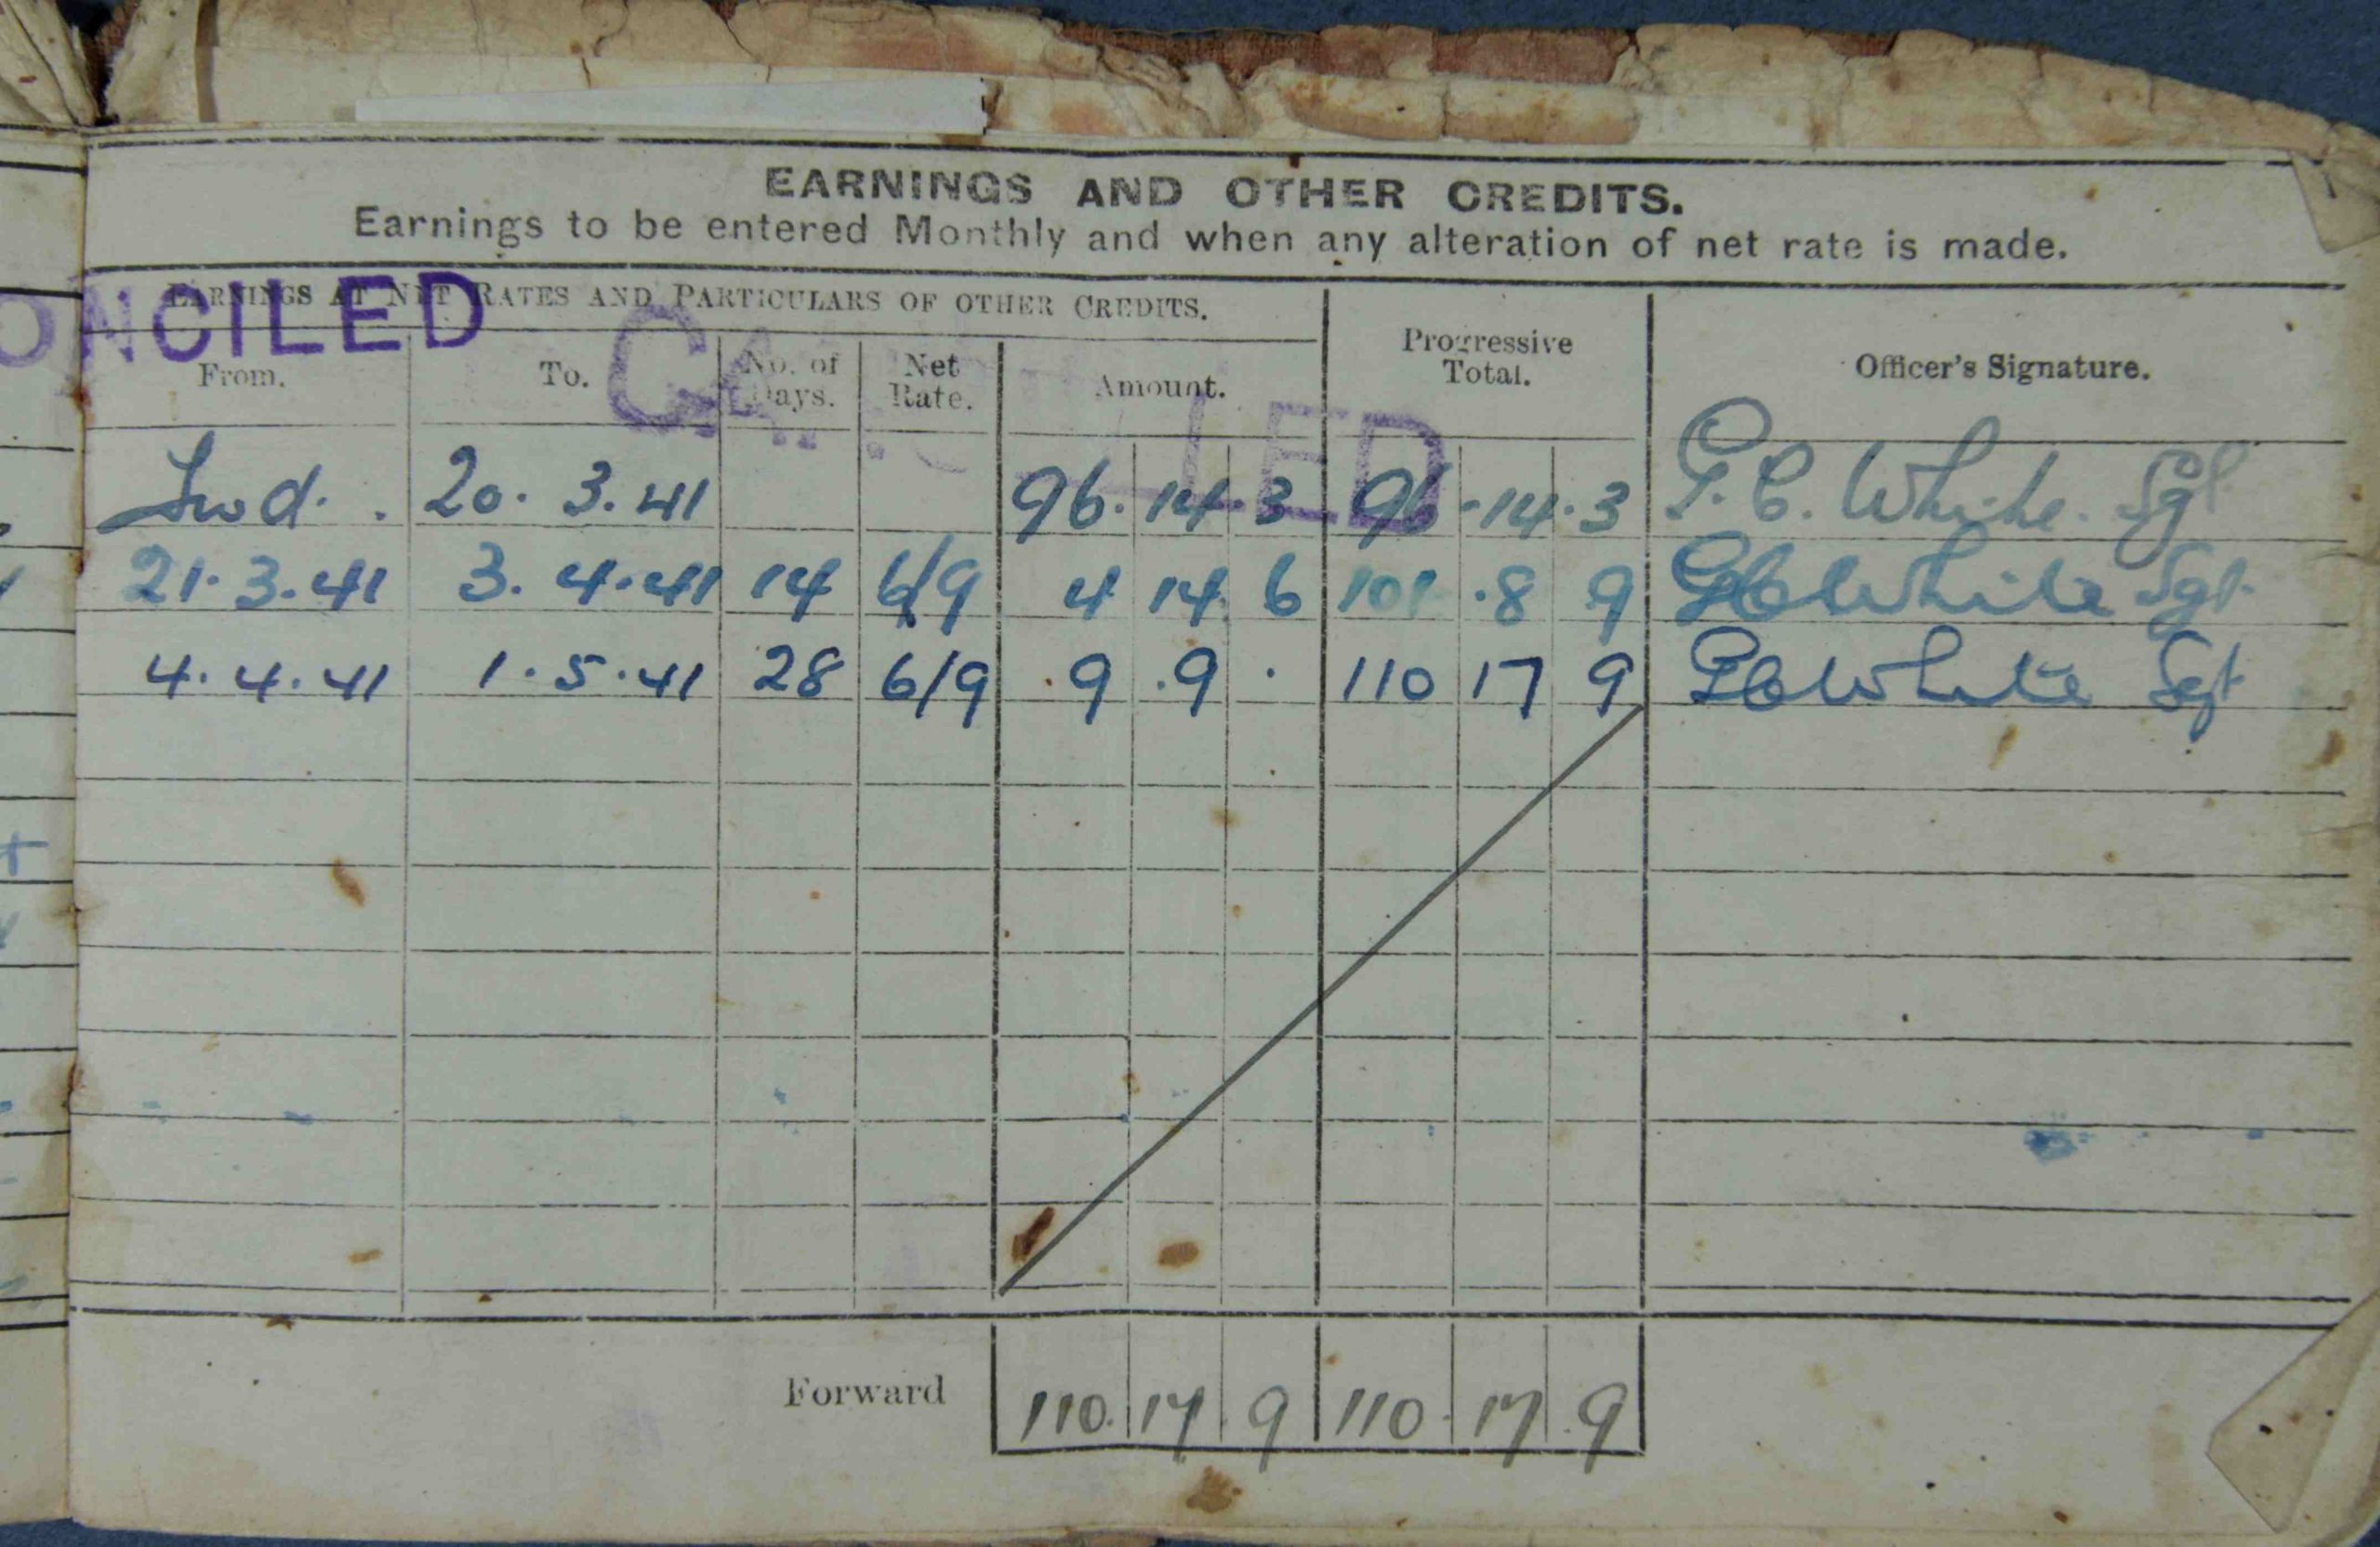 EARNINGS AND OTHER CREDITS.
Earnings to be entered Monthly and when any alteration of net rate is made.
ONCILED
EARNINGS AT NET RATES AND PARTICULARS OF OTHER CREDITS.
From. To. No. of Days. Net Rate. Amount. Progressive Total. Officer's Signature.
Fwd. 20. 3. 41 96. 14. 3 96 - 14. 3 G. C. White. Sgt
21. 3. 41 3. 4. 41 14 6/9 4 14. 6 101 . 8 9 GC White Sgt.
4. 4. 41 1. 5. 41 28 6/9 . 9 . 9 . 110 17 9 GC White Sgt
Forward 110. 17. 9 110. 17. 9